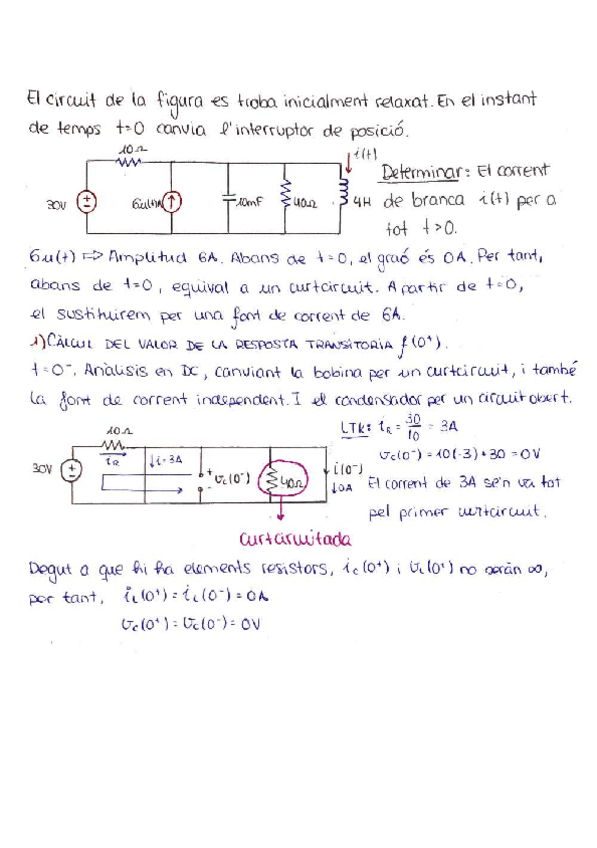 El circuit de la figura es troba inicialment relaxat. En el instant
de temps t=0 canvia l'interruptor de posició.
10Ω
i(t)
30V
10mF
40Ω
4H
Determinar: El corrent
de branca i(t) per a
tot t>0.
6u(t) => Amplitud 6A. Abans de t=0, el graó és 0A. Per tant,
abans de t=0, equival a un curtcircuit. A partir de t=0,
el sustituirem per una font de corrent de 6A.
1) CÀLCUL DEL VALOR DE LA RESPOSTA TRANSITORIA f(0⁺).
t=0⁻. Anàlisis en DC, canviant la bobina per un curtcircuit, i també
la font de corrent independent. I el condensador per un circuit obert.
10Ω
iR
30V
↓i=3A
+
-
Vc(0⁻)
40Ω
i(0⁻)
↓0A
LTK: iR = 30/10 = 3A
Vc(0⁻) = 10(-3)+30 = 0V
El corrent de 3A se'n va tot
pel primer curtcircuit.
curtcircuitada
Degut a que hi ha elements resistors, ic(0⁺) i VL(0⁺) no seràn ∞,
per tant, iL(0⁺) = iL(0⁻) = 0A
Vc(0⁺) = Vc(0⁻) = 0V